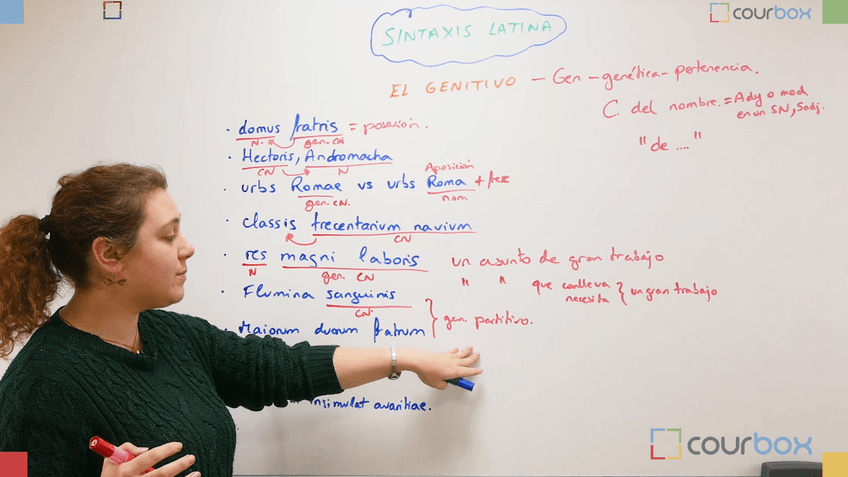 courbox
SINTAXIS LATINA
EL GENITIVO - Gen - genética - pertenencia.
C. del nombre. = Ady o mod
en un SN, Sadj.
"de ...."
· domus fratris = posesión.
N. gen. CN
· Hectoris, Andromacha
CN N
Aposición
· urbs Romae vs urbs Roma + frec
gen. CN. nom
· classis trecentarium navium
CN
· res magni laboris un asunto de gran trabajo
N gen. CN
" " que conlleva
necesita } un gran trabajo
· Flumina sanguinis
CN.
· Maiorum duorum fratrum } gen. partitivo.
insimulat avaritiae.
courbox